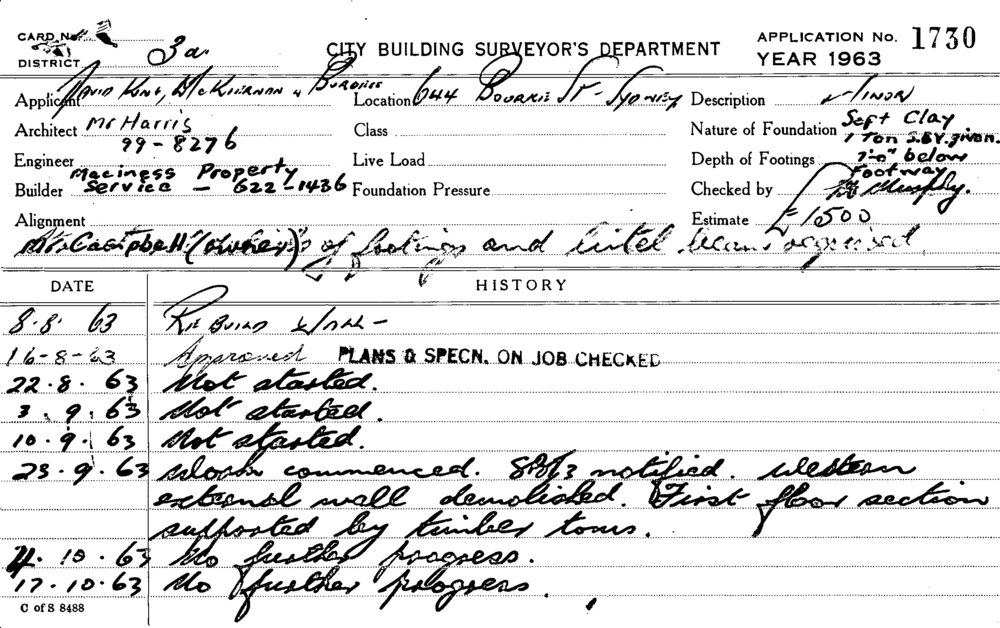 CARD No.
DISTRICT 3a
CITY BUILDING SURVEYOR'S DEPARTMENT
APPLICATION No. 1730
YEAR 1963
Applicant David King, McKiernan & Burgess Location 644 Bourke St - Sydney Description Minor
Architect Mr Harris 99-8276 Class Nature of Foundation Soft Clay 1 Ton S.B.V. given.
Engineer Live Load Depth of Footings 7'-0" below Footway
Builder Maciness Property Service - 622-1436 Foundation Pressure Checked by Murphy.
Alignment Estimate £1500
Mr Campbell (owner) of footings and lintel beams required
DATE HISTORY
8.8.63 Rebuild Wall -
16-8-63 Approved PLANS & SPECN. ON JOB CHECKED
22.8.63 Not started.
3.9.63 Not started.
10.9.63 Not started.
23.9.63 Work commenced. notified. Western
external wall demolished. First floor section
supported by timber toms.
4.10.63 No further progress.
17.10.63 No further progress.
C of S 8488